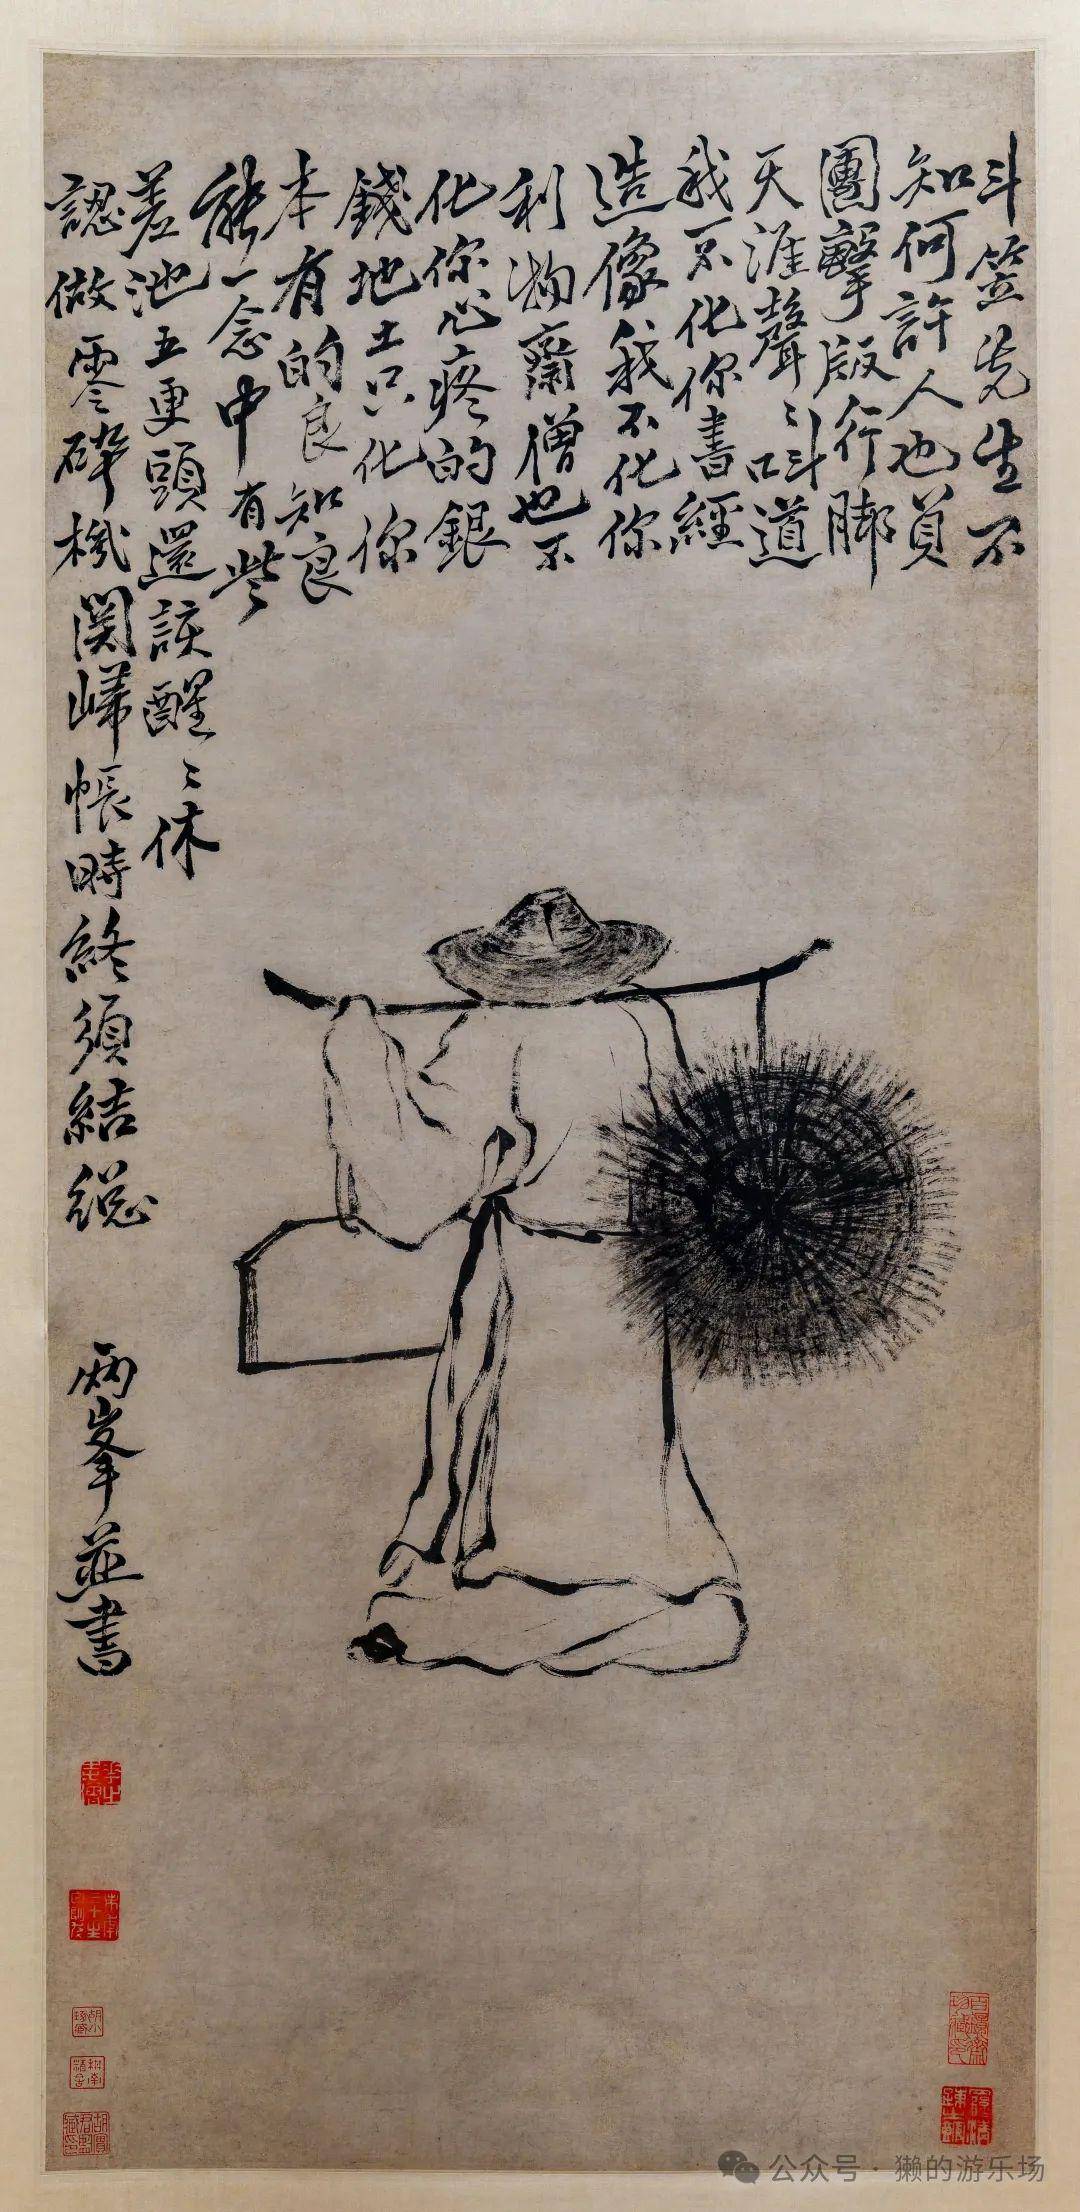 斗笠先生不
知何許人也負
團擊版行脚
天涯聲〻叫道
我不化你書經
造像我不化你
利物齋僧也不
化你心疼的銀
錢地土只化你
本有的良知良
能一念中有些
差池五更頭還該醒〻休
認做零碎機関㷌帳時終須結總
兩峯並書
公众号·獭的游乐场